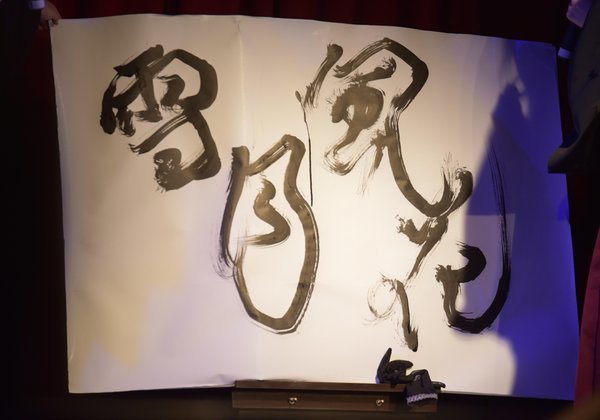 風花
雪月